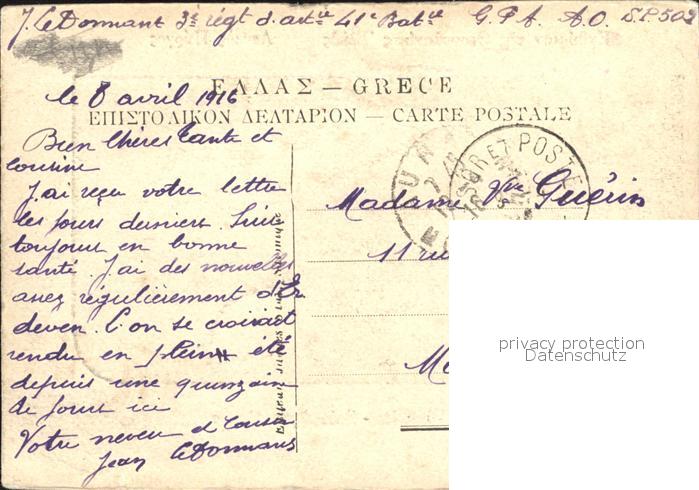 J. LeDonnant 3e régt d'artie 41e Batie G.P.A. A.O. S.P. 502
ΕΛΛΑΣ — GRECE
le 8 avril 1916
ΕΠΙΣΤΟΛΙΚΟΝ ΔΕΛΤΑΡΙΟΝ — CARTE POSTALE
Bien Chères tante et
cousine
J'ai reçu votre lettre
les jours derniers. Suis
toujours en bonne
santé. J'ai des nouvelles
assez régulièrement d'Er
deven. L'on se croirait
rendu en plein été
depuis une quinzaine
de jours ici
Votre neveu et cousin
Jean LeDonnant
TRESOR ET POSTES
Madame Vve Guérin
11 rue
privacy protection
Datenschutz